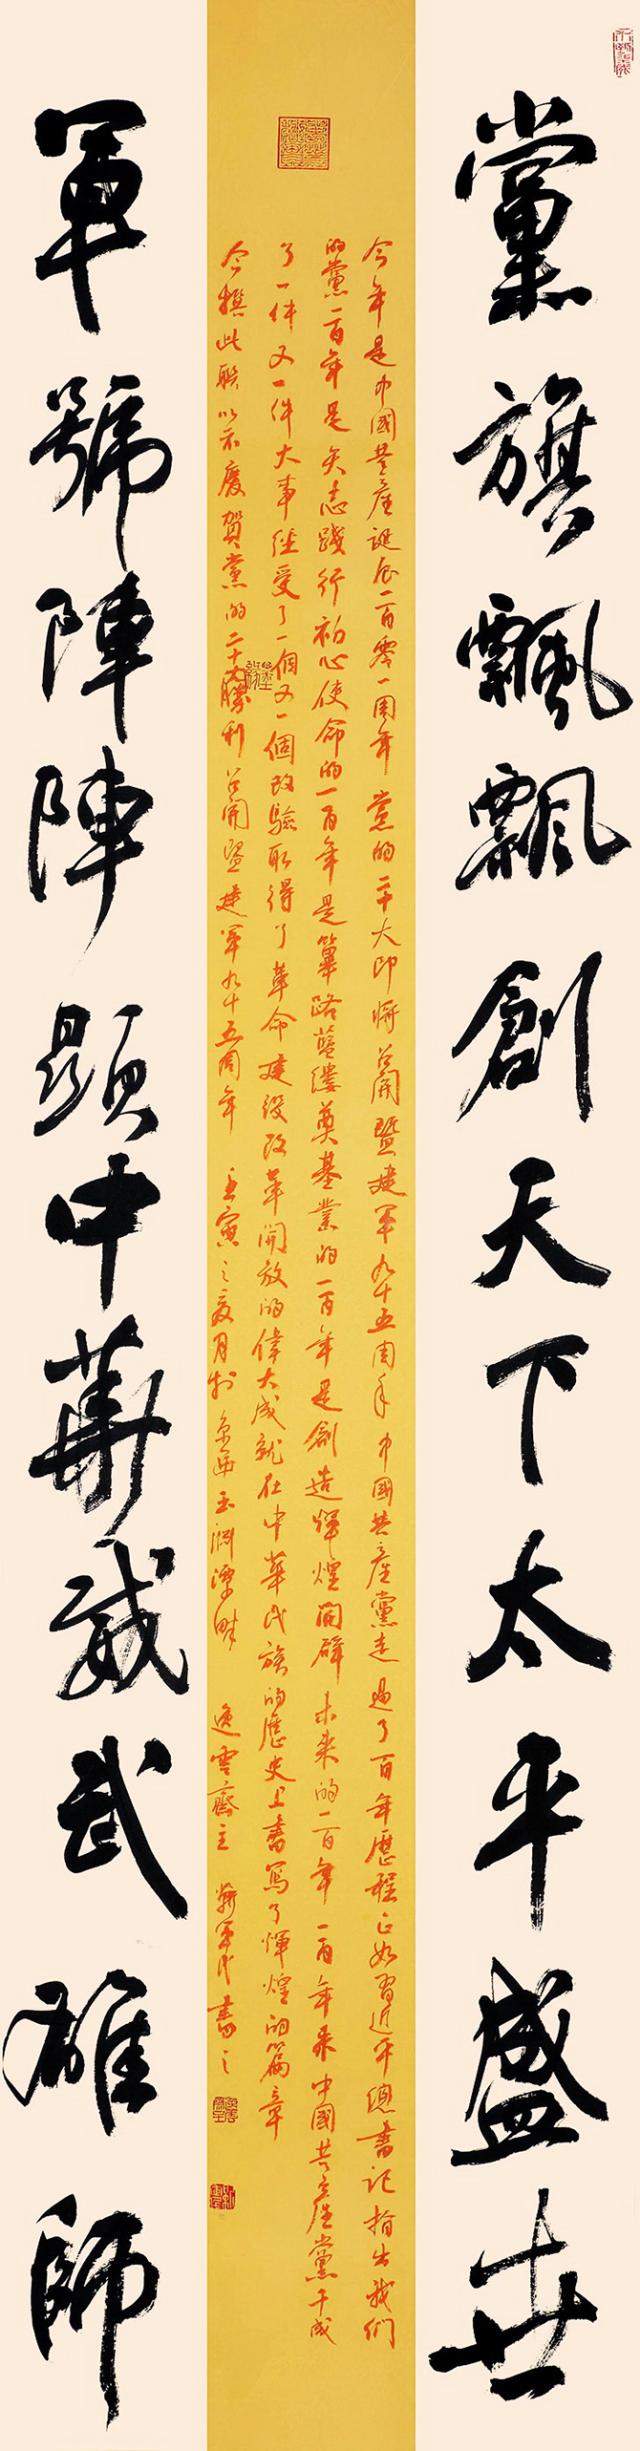 黨旗飄飄創天下太平盛世
今年是中國共產誕辰一百零一周年黨的二十大即將召開暨建軍九十五周年中國共產黨走過了百年歷程正如習近平總書記指出我們
的黨一百年是矢志踐行初心使命的一百年是篳路藍縷奠基業的一百年是創造輝煌開辟未來的一百年一百年來中國共產黨干成
了一件又一件大事經受了一個又一個考驗取得了革命建設改革開放的偉大成就在中華民族的歷史上書寫了輝煌的篇章
今撰此聯以示慶賀黨的二十大勝利召開暨建軍九十五周年壬寅之夏月於京西玉淵潭畔逸雲齋主軍民書之
軍號陣陣顯中華威武雄師